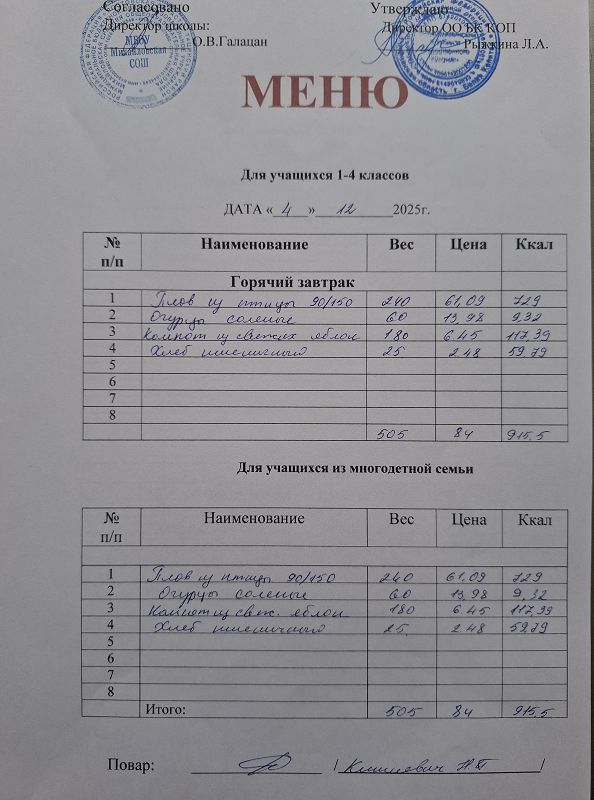 Согласовано Утверждаю:
Директор школы: Директор ООО БК КОП
О.В.Галацан Рыжкина Л.А.
МБОУ
Михайловская
СОШ
МЕНЮ
Для учащихся 1-4 классов
ДАТА « 4 » 12 2025г.
№ п/п Наименование Вес Цена Ккал
Горячий завтрак
1 Плов из птицы 90/150 240 61,09 729
2 Огурцы соленые 60 13,98 9,32
3 Компот из свежих яблок 180 6.45 117,39
4 Хлеб пшеничный 25 2.48 59.79
5
6
7
8
505 84 915,5
Для учащихся из многодетной семьи
№ п/п Наименование Вес Цена Ккал
1 Плов из птицы 90/150 240 61,09 729
2 Огурцы соленые 60 13,98 9,32
3 Компот из свеж. яблок 180 6.45 117,99
4 Хлеб пшеничного 25 2.48 59,79
5
6
7
8
Итого: 505 84 915,5
Повар: / Н.П /